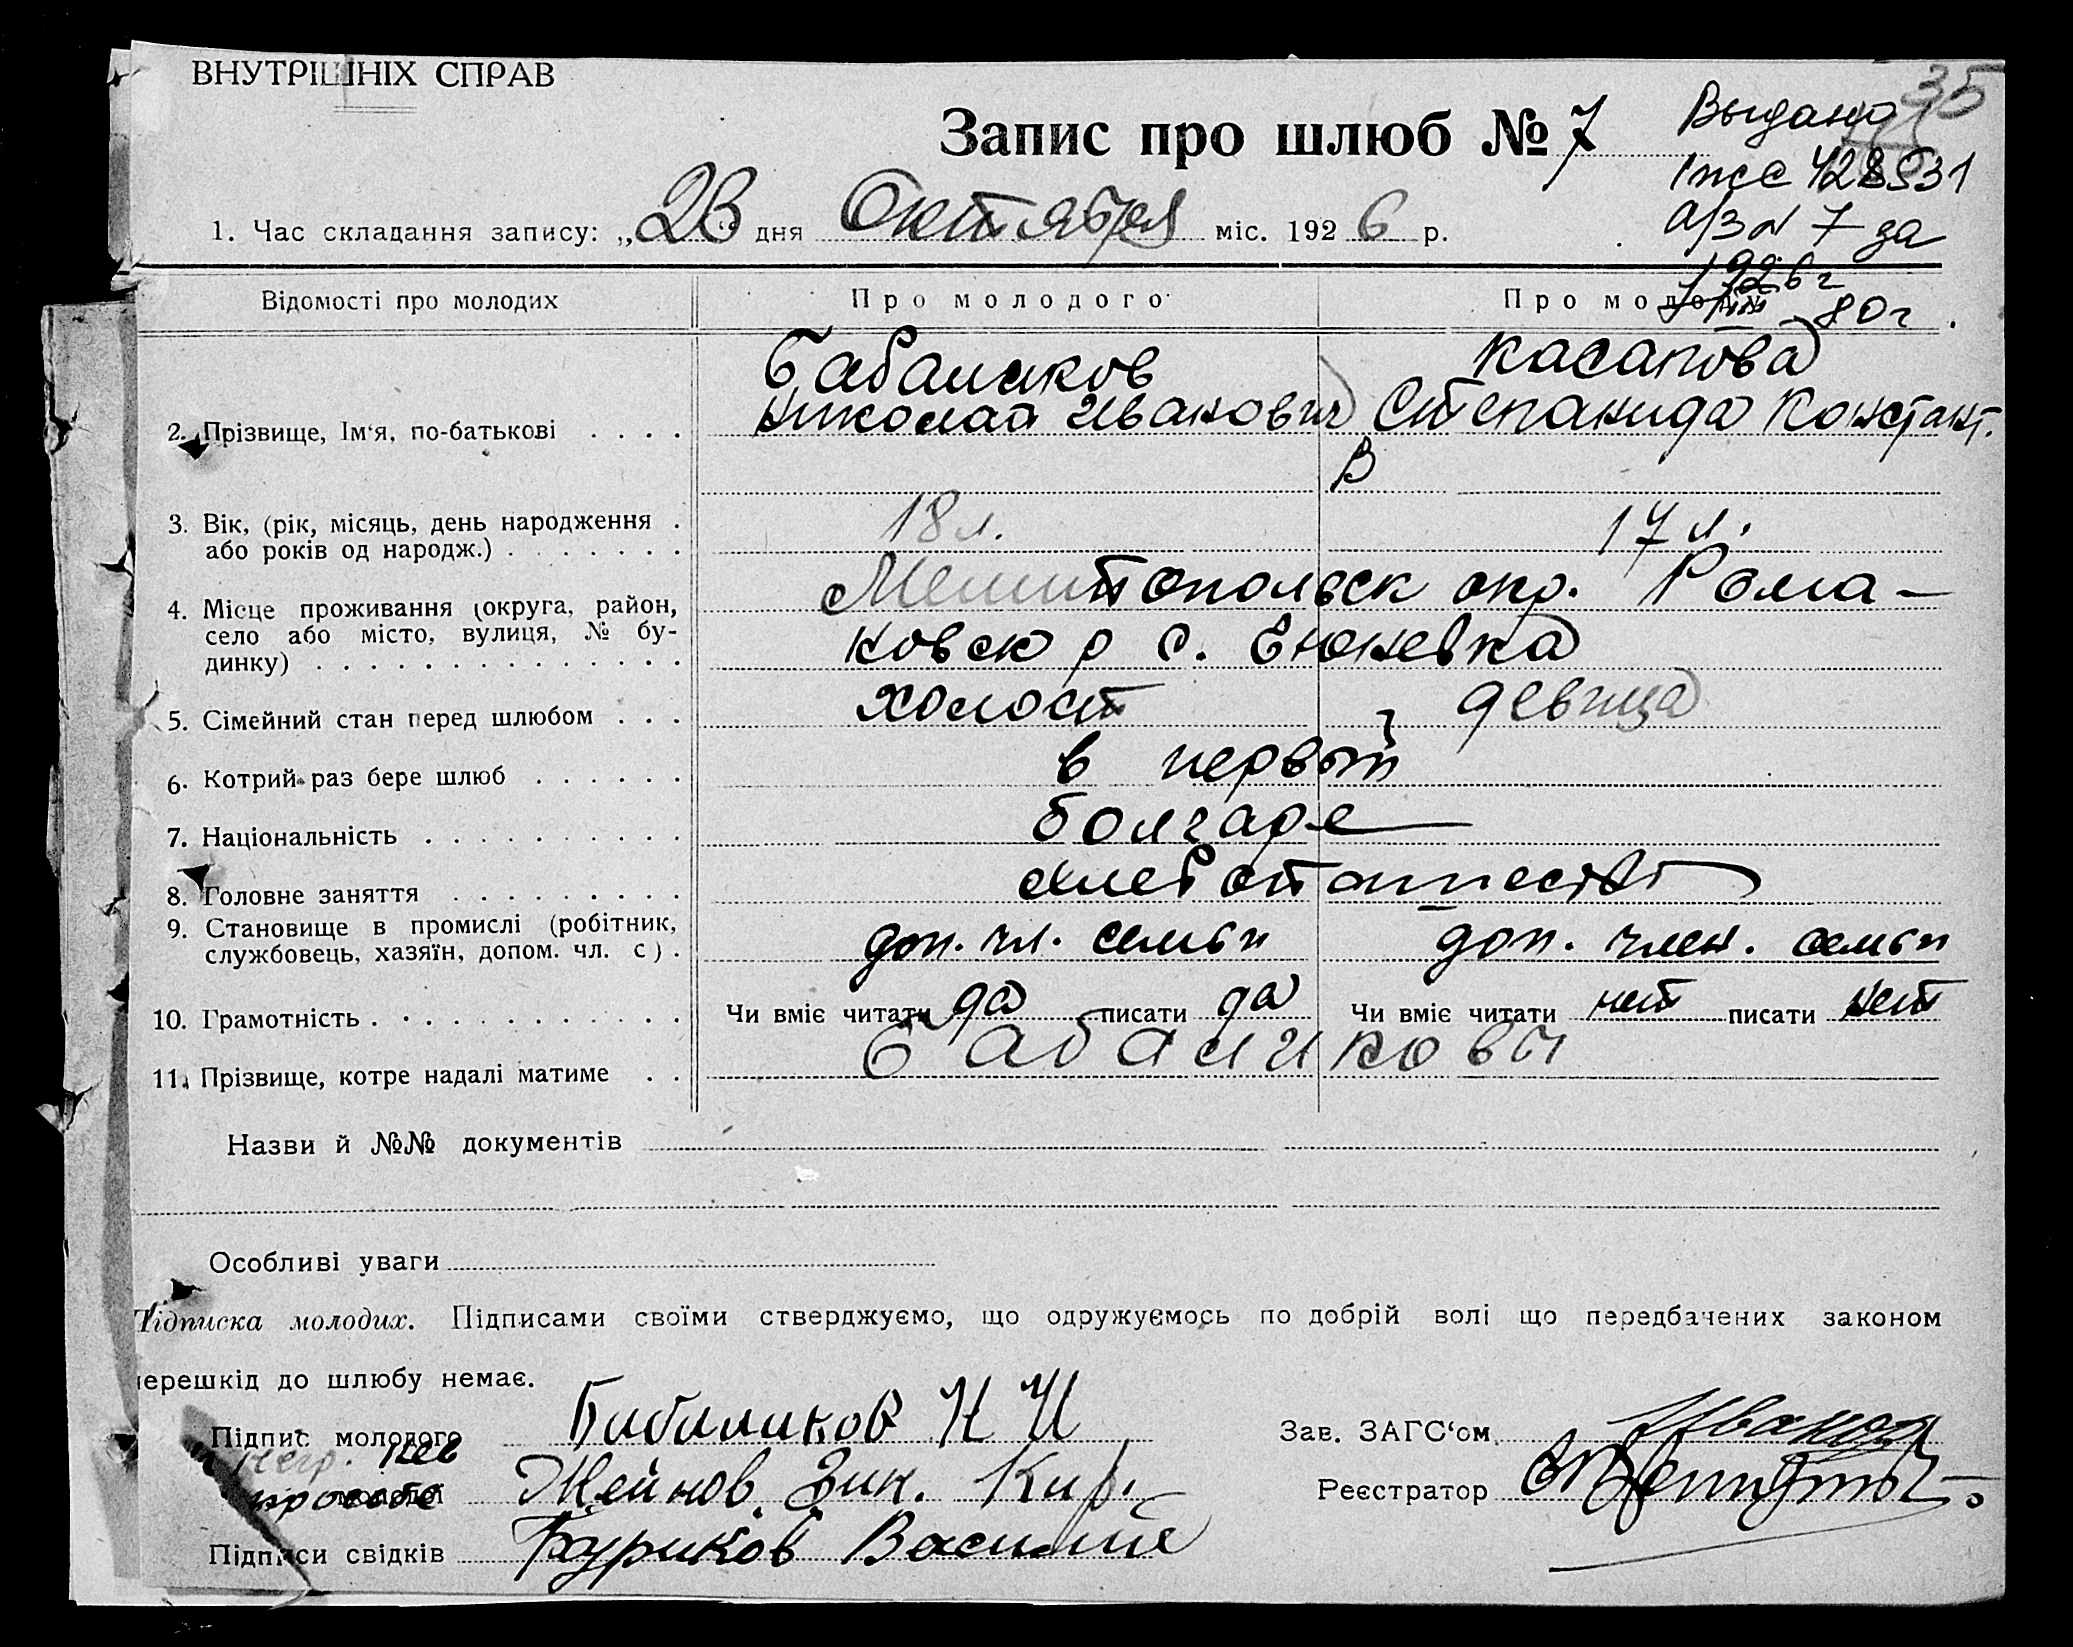 ВНУТРІШНІХ СПРАВ
35
Запис про шлюб № 7
Выдано
428531
а/з N 7 за
1926 г
80 г.
1. Час складання запису: „23" дня Октября міс. 1926 р.
Відомості про молодих Про молодого Про молоду
Бабаликов Касапова
2. Прізвище, Ім'я, по-батькові . . . . Николай Иванович Степанида Констант.
В
3. Вік, (рік, місяць, день народження . 18 л. 17 л.
або років од народж.) . . . . . . .
4. Місце проживання (округа, район, Мелитопольск окр. Рома-
село або місто, вулиця, № бу- новск р с. Енюневка
динку) . . . . . . . . . . . . . .
5. Сімейний стан перед шлюбом . . . холост девица
6. Котрий раз бере шлюб . . . . . . в первый
7. Національність . . . . . . . . . . болгаре
8. Головне заняття . . . . . . . . .
9. Становище в промислі (робітник, доп. чл. семьи доп. член. семьи
службовець, хазяїн, допом. чл. с) .
10. Грамотність . . . . . . . . . . . . Чи вміє читати да писати да Чи вміє читати нет писати нет
11. Прізвище, котре надалі матиме . . Бабаликовы
Назви й №№ документів
Особливі уваги
Підписка молодих. Підписами своїми стверджуємо, що одружуємось по добрій волі що передбачених законом
перешкід до шлюбу немає.
Підпис молодого Бабаликов Н И Зав. ЗАГС'ом Иванов
негр. нев
просьбе молодої Жейнов Зин. Кир. Реєстратор
Підписи свідків Буриков Василий